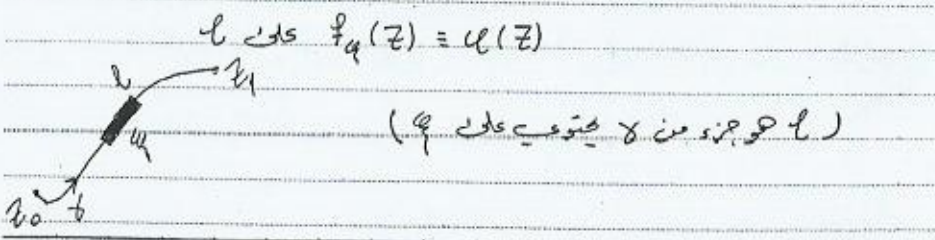 f_φ(z) ≡ φ(z) على l
l
z₁
(l هو جزء من γ يحتوي على φ)
z₀